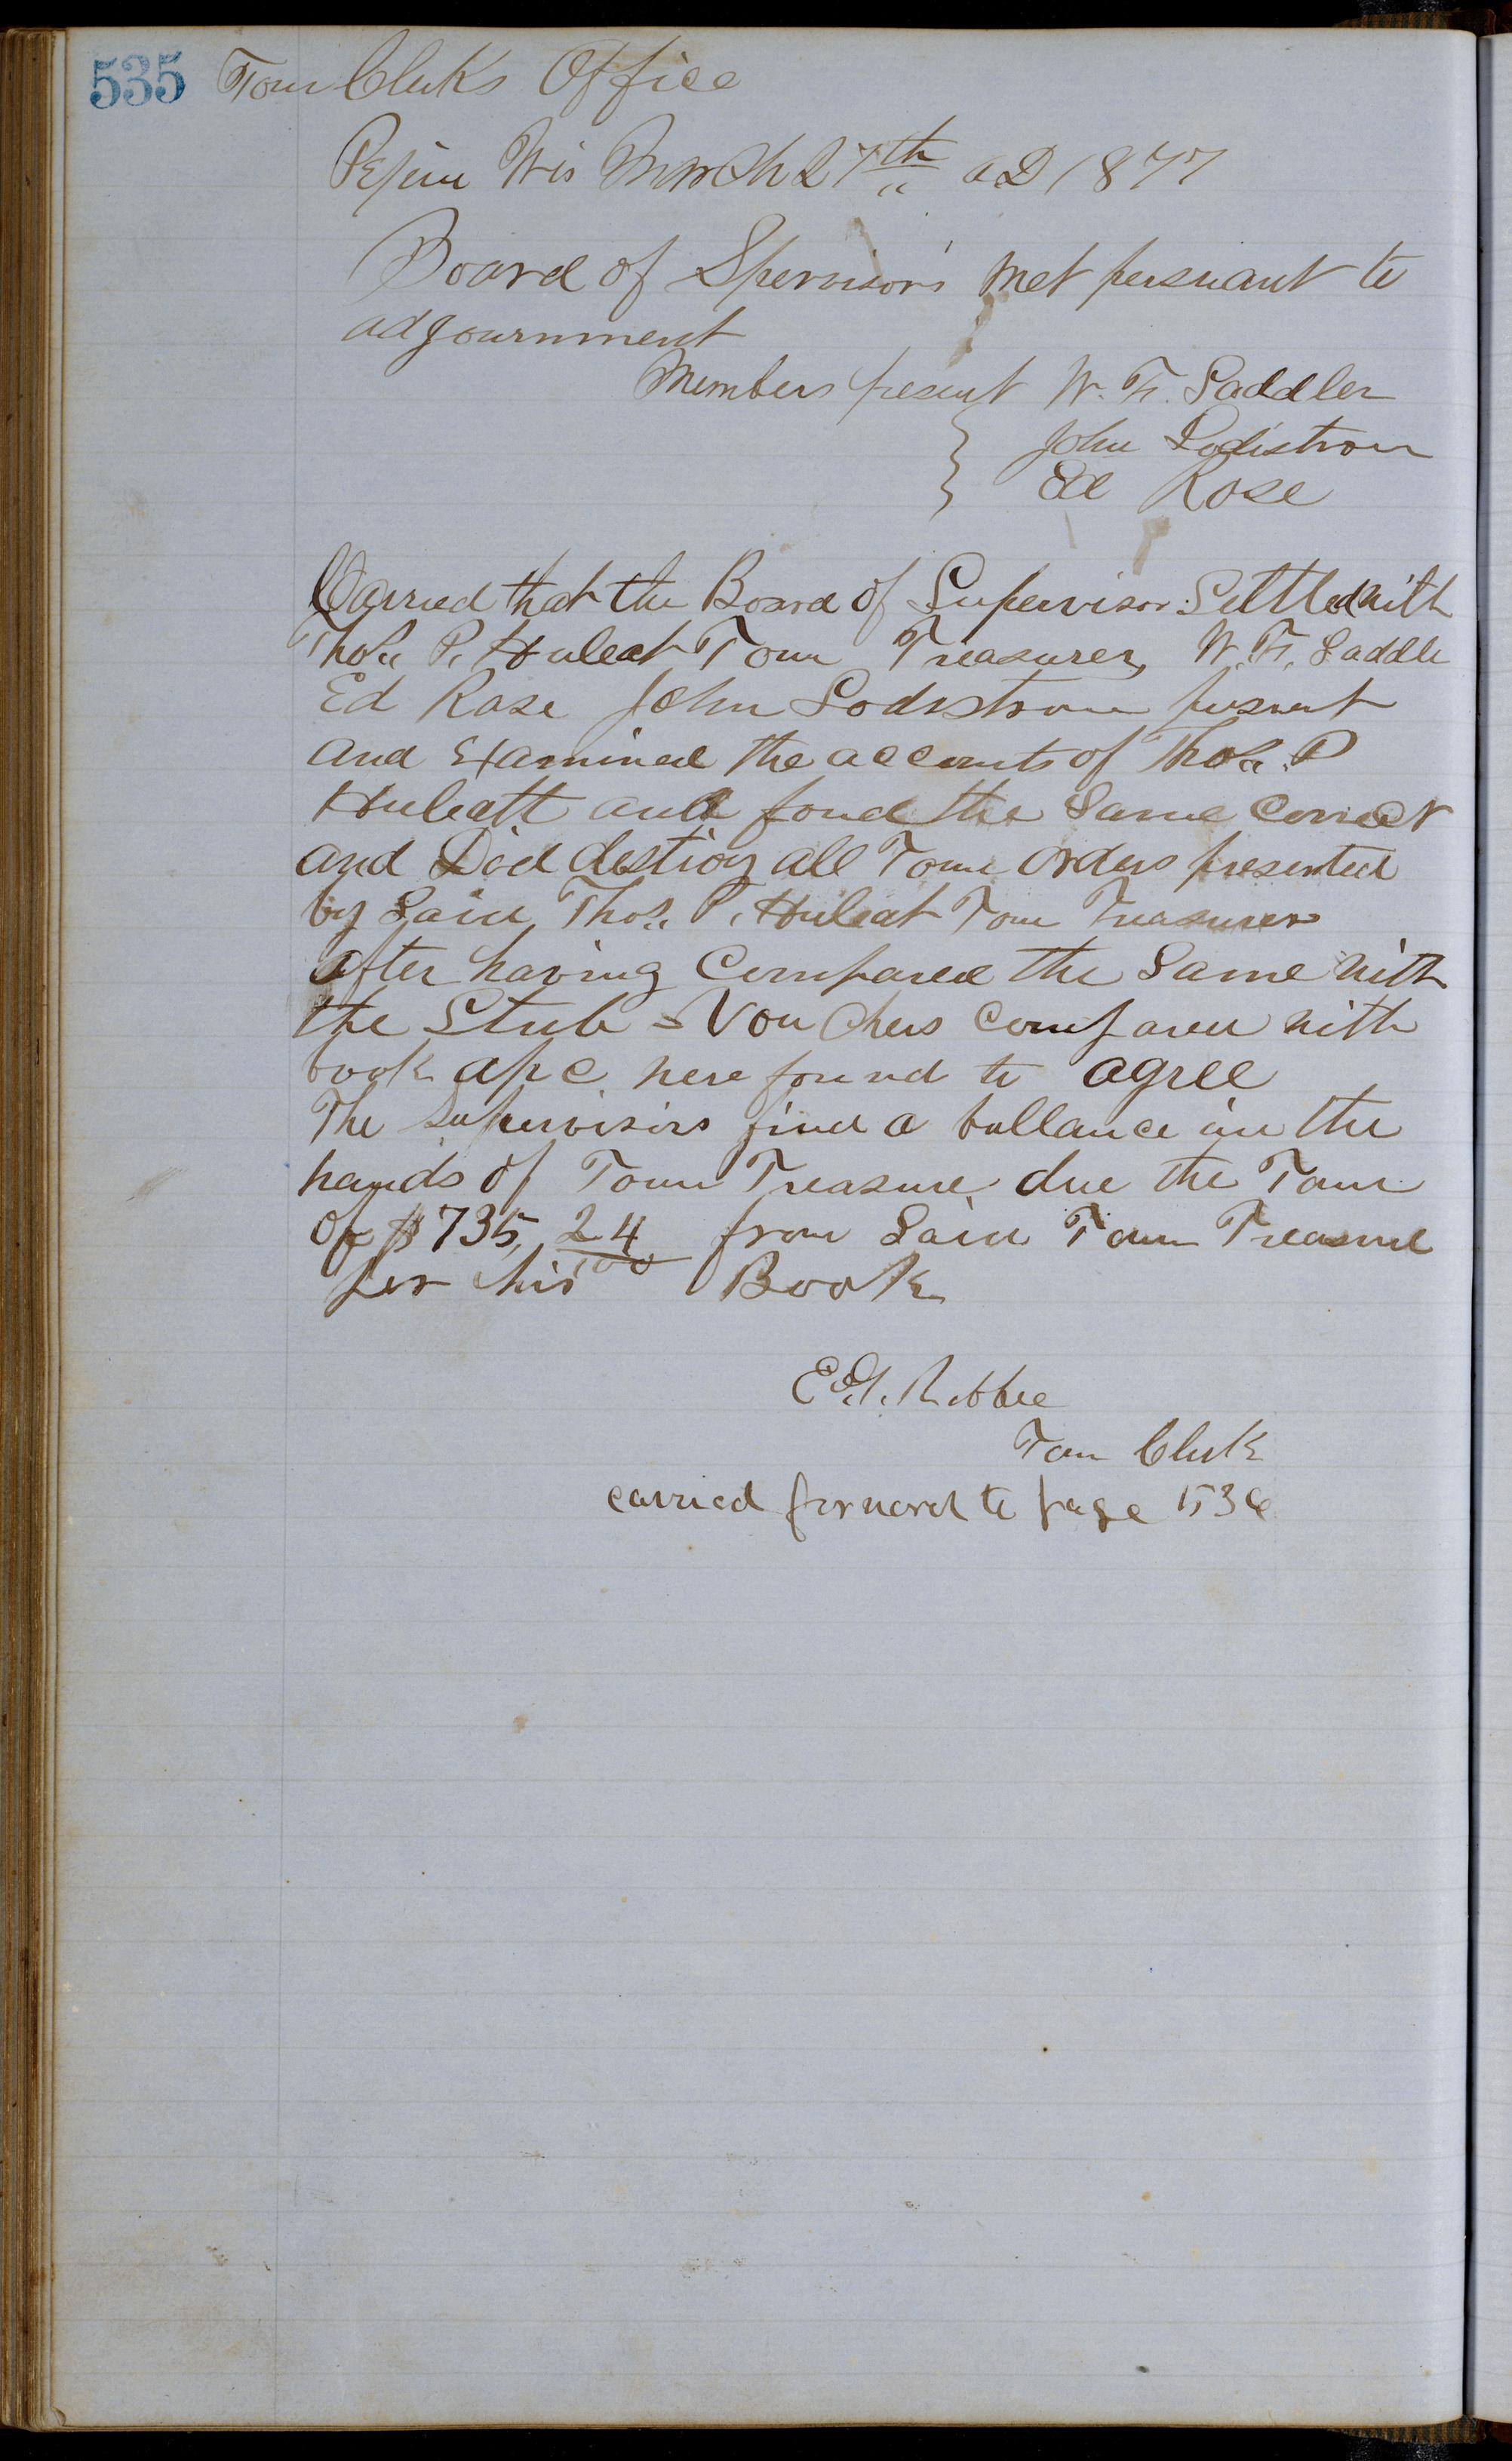 535 Town Clerks Office
Pepin Wis March 27th AD 1877
Board of Spervisors met persuant to
adjournment
Members present W. F. Saddler
John Lodistrom
Ed Rose
Carried that the Board of Supervisor Settled with
Thos. P. Huleat Town Treasurer, W. F. Saddle
Ed Rose John Lodistrom present
and Examined the accounts of Thos. P
Huleatt and found the Same Correct
and Did destroy all Town orders presented
by Said Thos. P. Huleat Town Treasurer
after having Compared the Same with
the Stub - Vouchers Compared with
book were found to agree
The Supervisors find a ballance in the
hands of Town Treasure due the Town
of $735, 24/00 from Said Town Treasure
per his Book
Town Clerk
carried forward to page 536